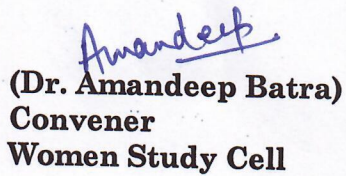 Amandeep
(Dr. Amandeep Batra)
Convener
Women Study Cell